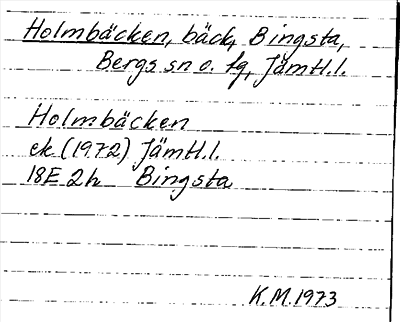 Holmbäcken, bäck, Bingsta,
Bergs sn o. tg, Jämtl.l.
Holmbäcken
ek (1972) Jämtl.l.
18E 2h Bingsta
K.M. 1973